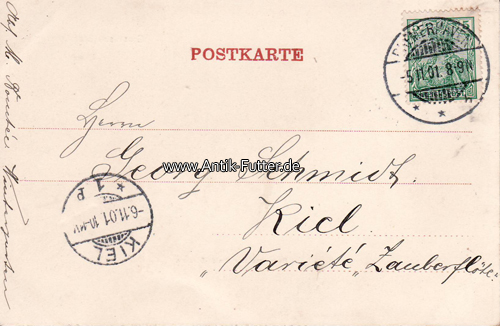 POSTKARTE
BREMERHAVEN
-5.11.01. 8-9N
Herrn
Georg Schmidt.
www.Antik-Futter.de
Kiel
"Varieté" "Zauberflöte"
* 1 P
-6.11.01. 10-11V
KIEL
Abs. M.